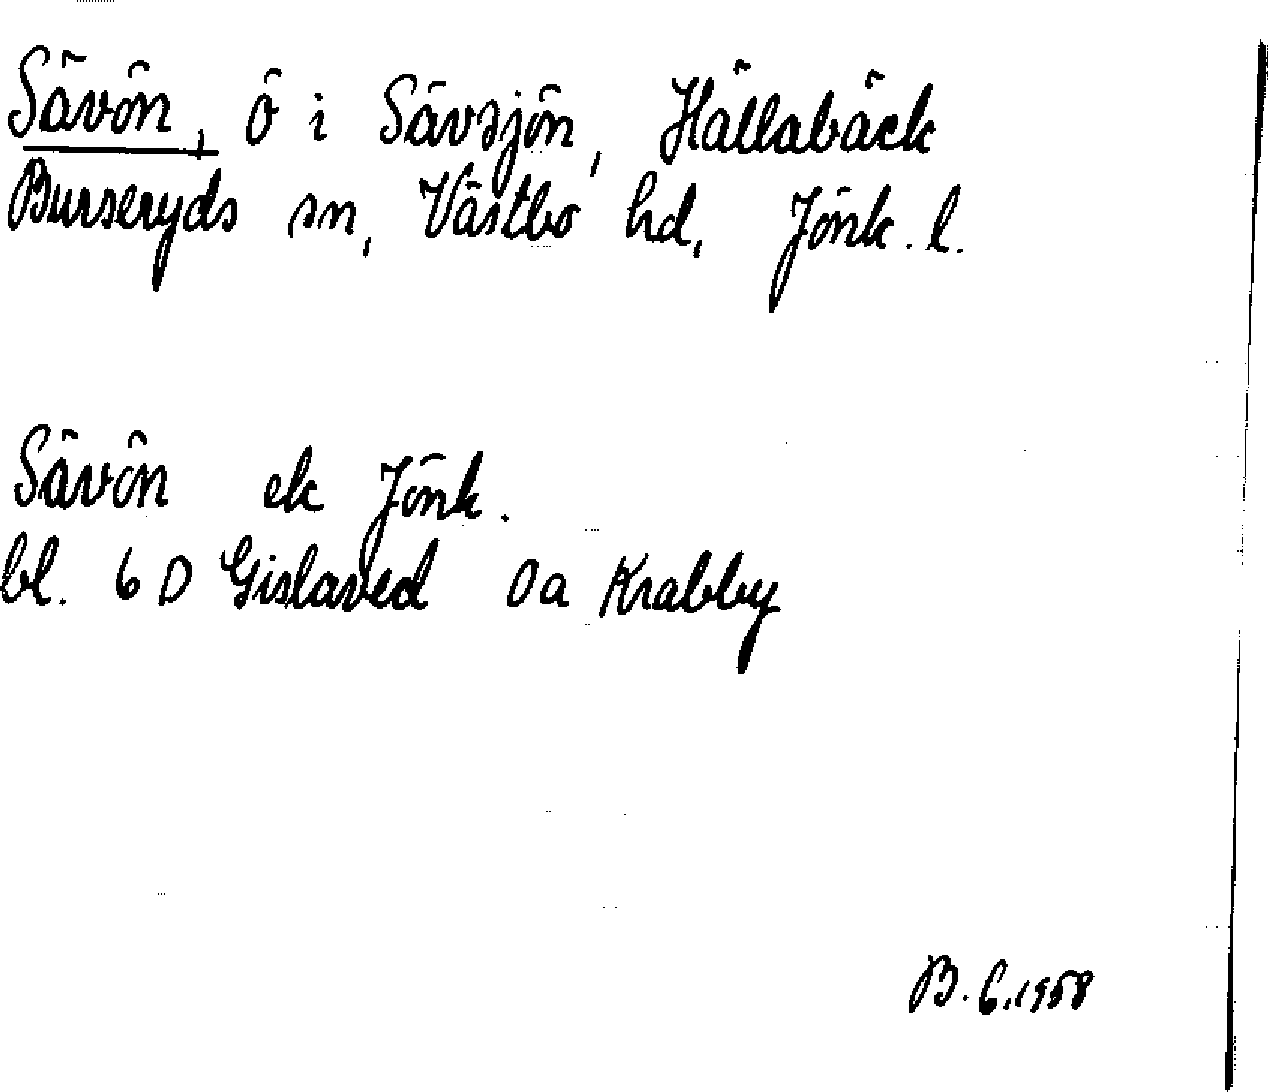 Sävön, ö i Sävsjön, Hällabäck
Burseryds sn, Västbo hd, Jönk. l.
Sävön ek Jönk.
bl. 6 D Gislaved 0a Krabby
B. 6.1958